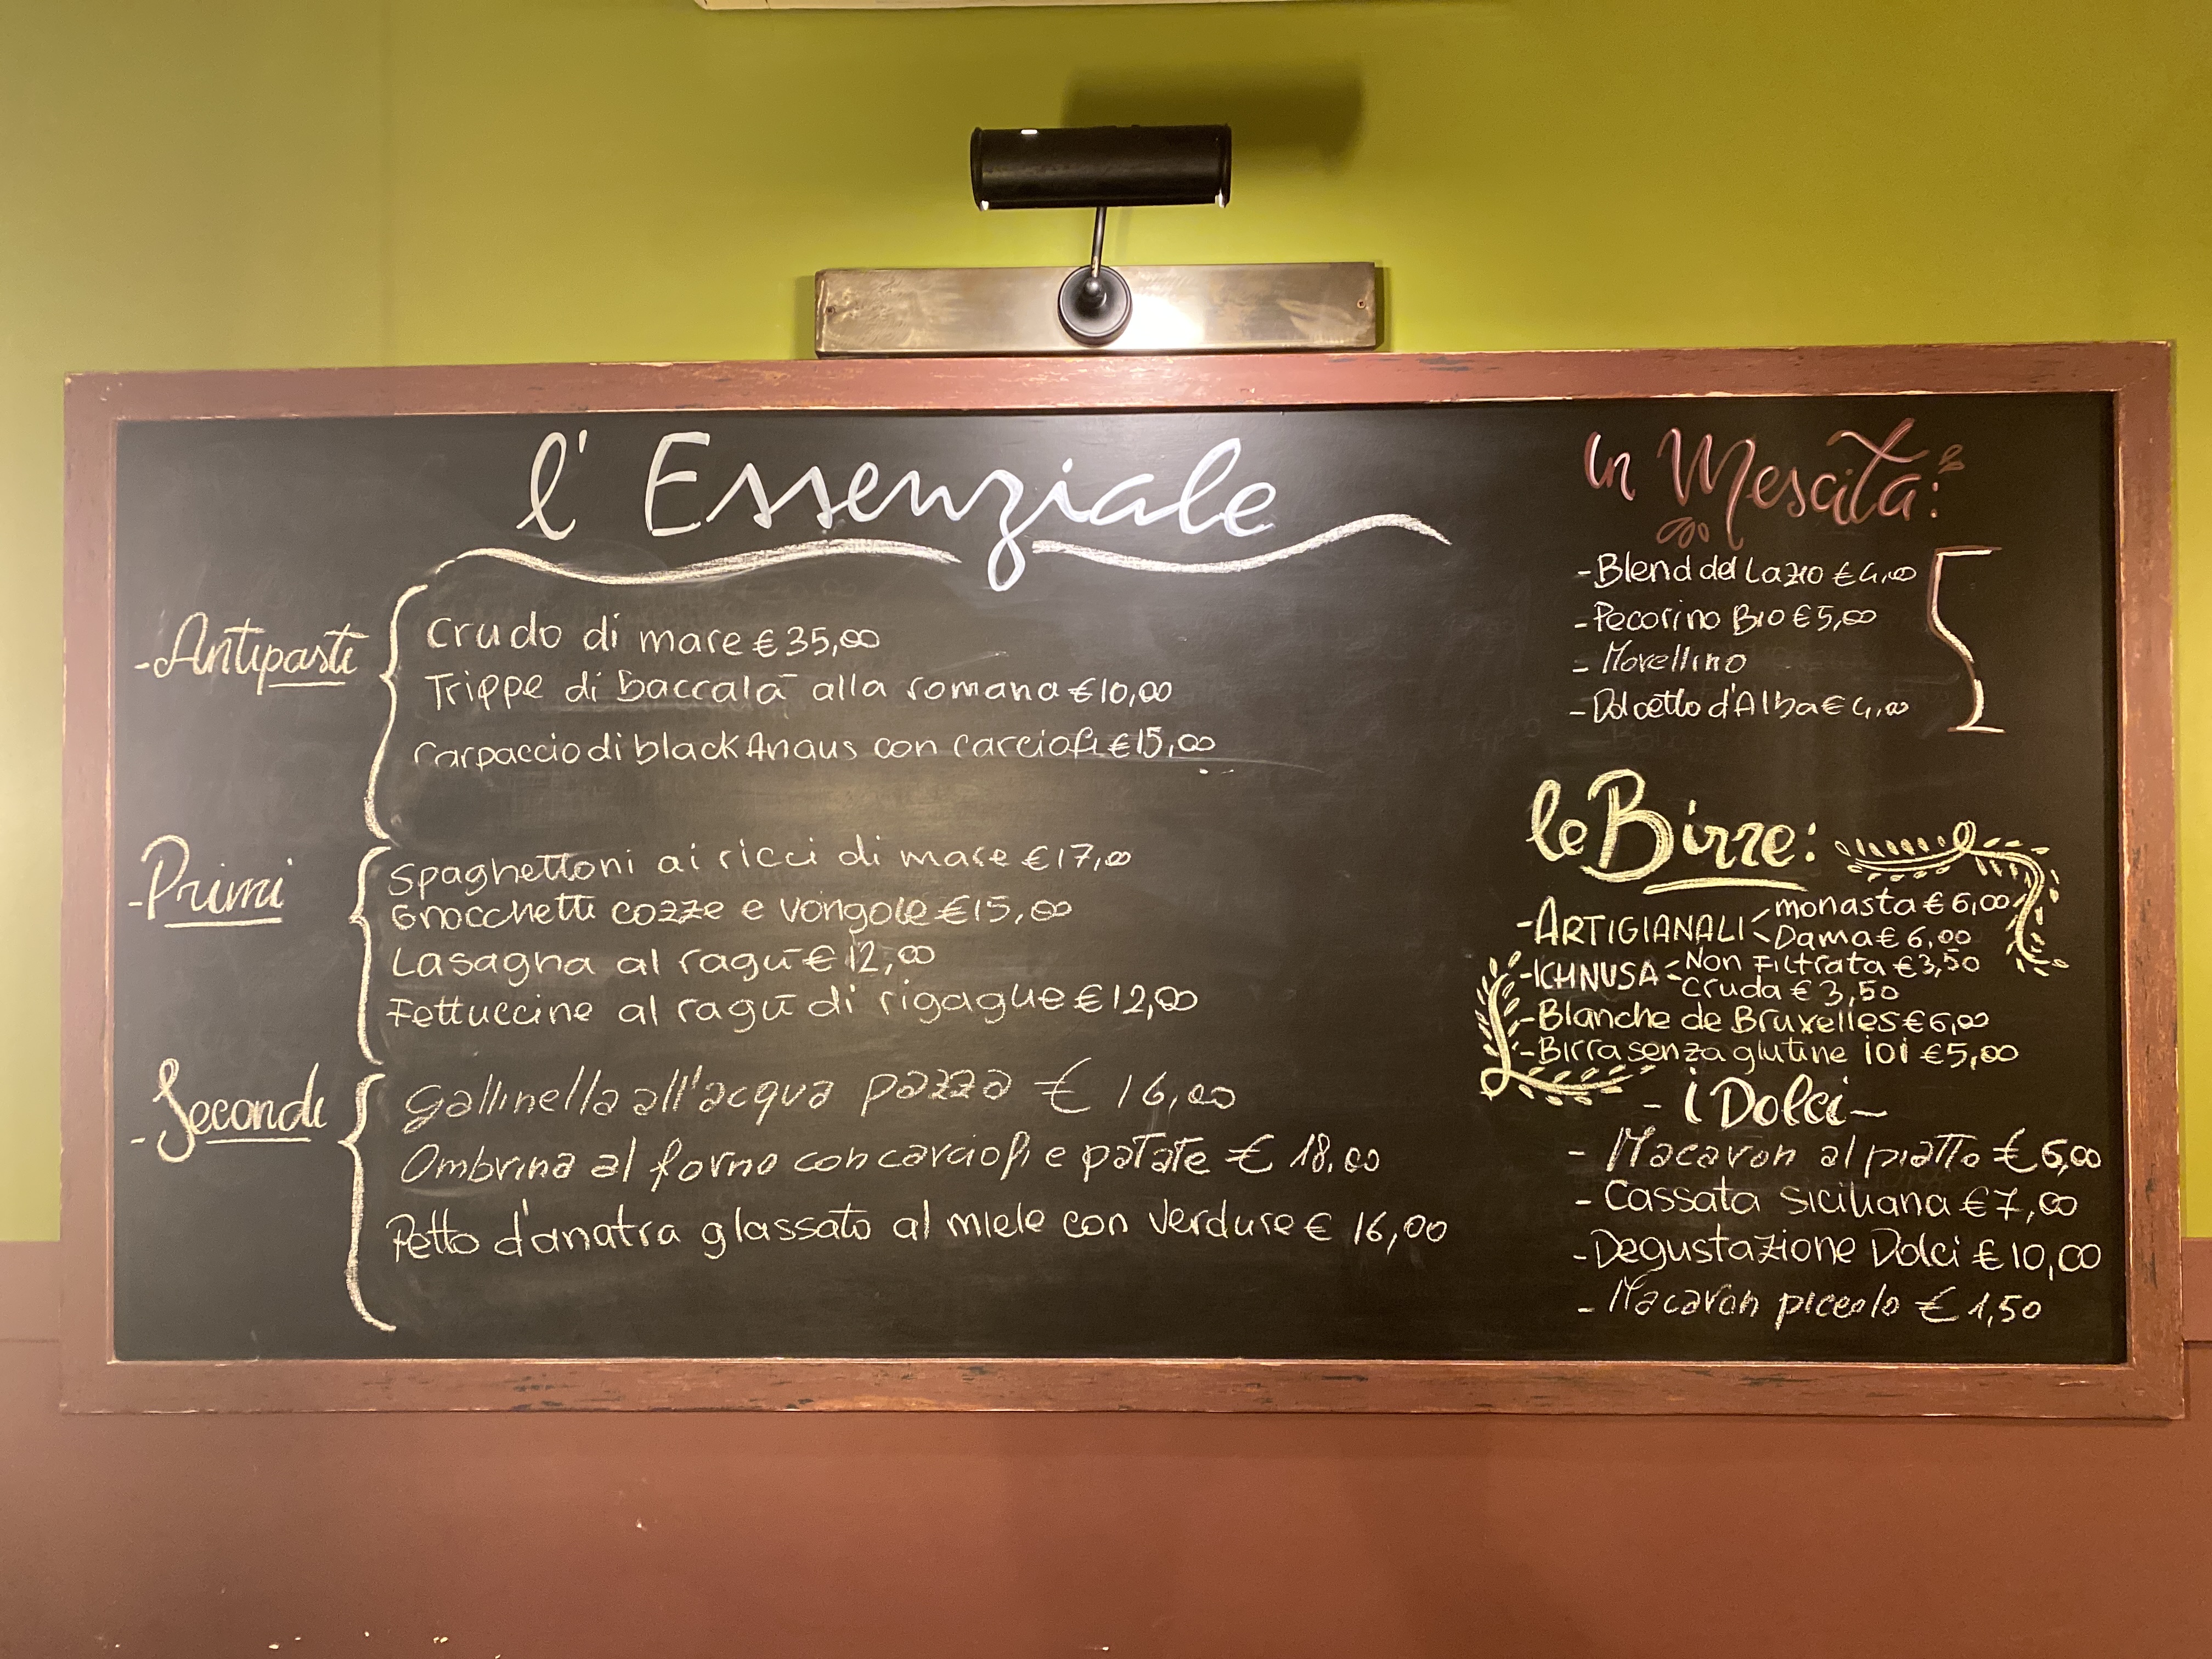 l'Essenziale
- Antipasti
Crudo di mare € 35,00
Trippe di baccalà alla romana € 10,00
Carpaccio di black Anaus con carciofi € 15,00
- Primi
Spaghettoni ai ricci di mare € 17,00
Gnocchetti cozze e vongole € 15,00
Lasagna al ragù € 12,00
Fettuccine al ragù di rigague € 12,00
- Secondi
Gallinella all'acqua pazza € 16,00
Ombrina al forno con carciofi e patate € 18,00
Petto d'anatra glassato al miele con verdure € 16,00
In Mescita:
- Blend del Lazio € 4,00
- Pecorino Bio € 5,00
- Morellino
- Dolcetto d'Alba € 4,00
le Birre:
- ARTIGIANALI < monasta € 6,00
Dama € 6,00
- ICHNUSA < Non Filtrata € 3,50
Cruda € 3,50
- Blanche de Bruxelles € 6,00
- Birra senza glutine ioi € 5,00
- i Dolci -
- Macaron al piatto € 6,00
- Cassata siciliana € 7,00
- Degustazione Dolci € 10,00
- Macaron piccolo € 1,50